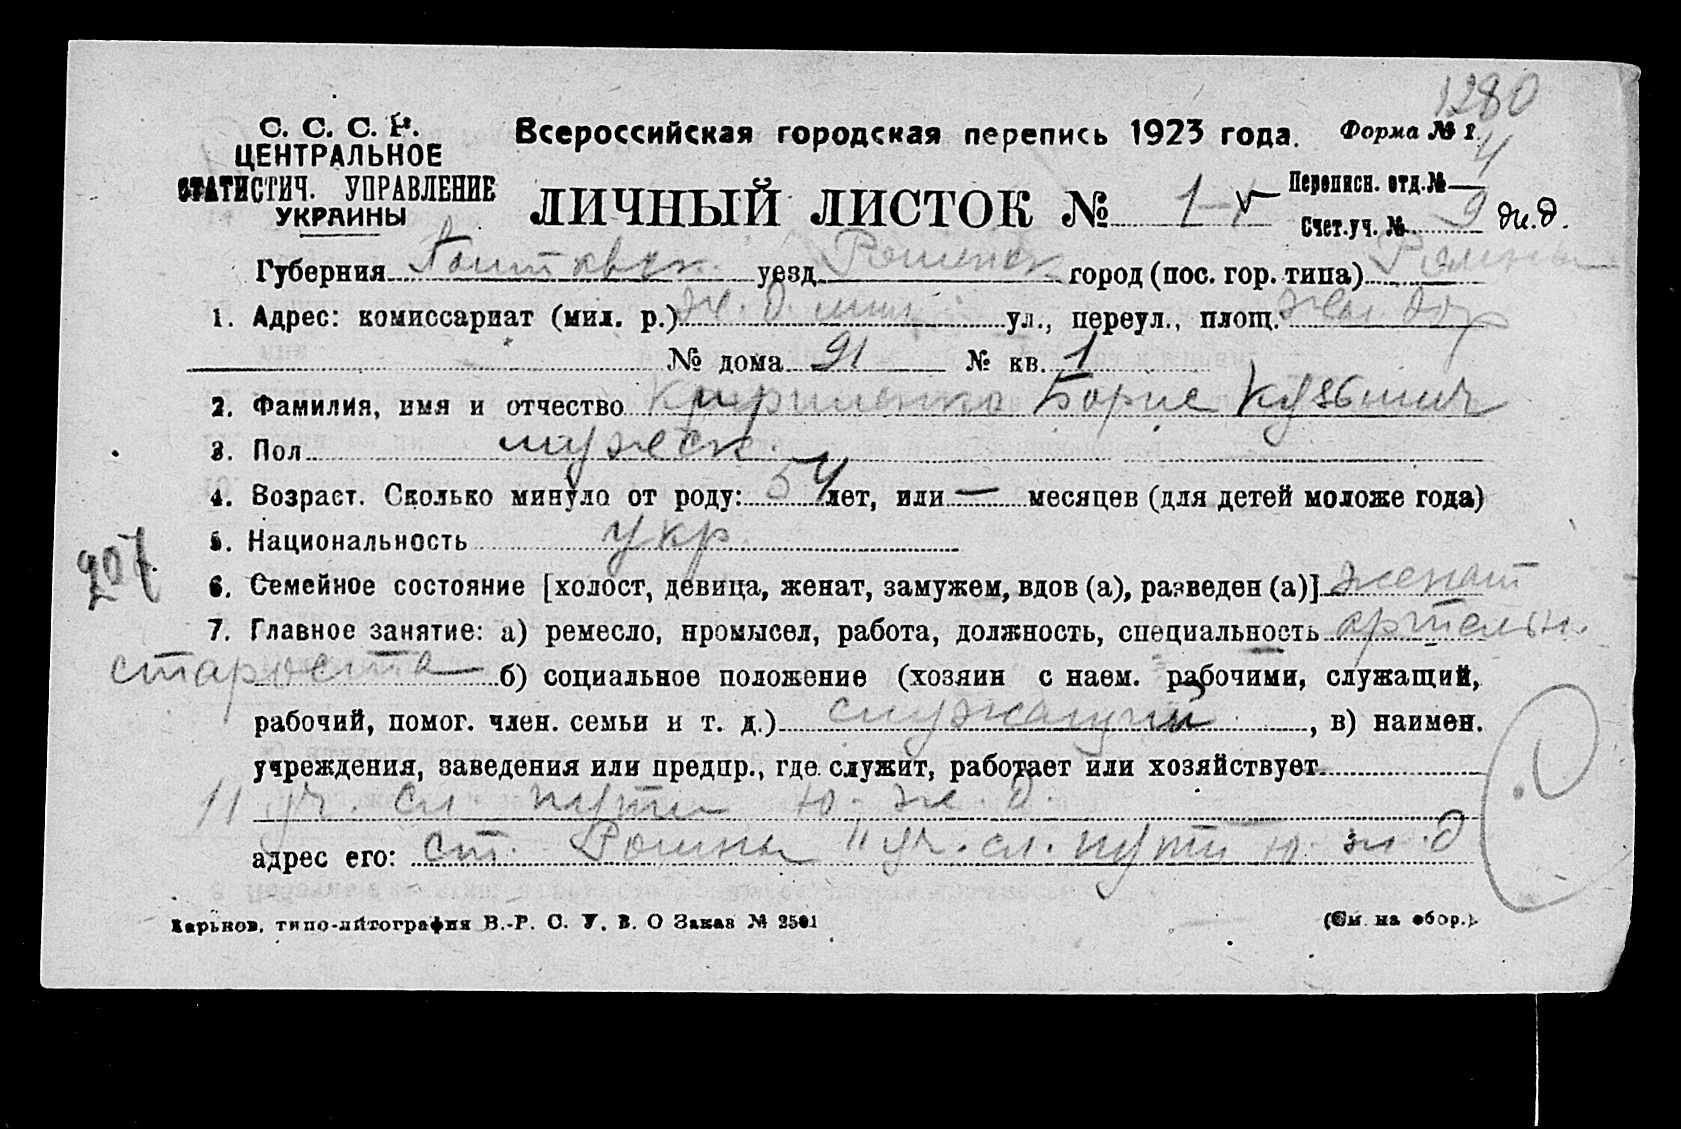 1280
С. С. С. Р.
ЦЕНТРАЛЬНОЕ
СТАТИСТИЧ. УПРАВЛЕНИЕ
УКРАИНЫ
Всероссийская городская перепись 1923 года. Форма № 1
ЛИЧНЫЙ ЛИСТОК № 1
Переписн. отд. № — 4
Счет. уч. № 9 ж.д.
Губерния Полтавск. уезд Роменск город (пос. гор. типа) Ромны
1. Адрес: комиссариат (мил. р.) ж. д. мил ул., переул., площ. жел. дор
№ дома 91 № кв. 1
2. Фамилия, имя и отчество Кириленко Борис Кузьмич
3. Пол мужеск.
4. Возраст. Сколько минуло от роду: 54 лет, или — месяцев (для детей моложе года)
5. Национальность укр.
207
6. Семейное состояние [холост, девица, женат, замужем, вдов (а), разведен (а)] женат
7. Главное занятие: а) ремесло, промысел, работа, должность, специальность артельн.
староста б) социальное положение (хозяин с наем. рабочими, служащий,
рабочий, помог. член. семьи и т. д.) служащий, в) наимен.
учреждения, заведения или предпр., где служит, работает или хозяйствует
11 уч. сл пути ю. ж д.
адрес его: ст. Ромны 11 уч. сл. пути ю. ж. д
Харьков, типо-литография В.-Р. С. У. В. О Заказ № 2501
(См. на обор.).